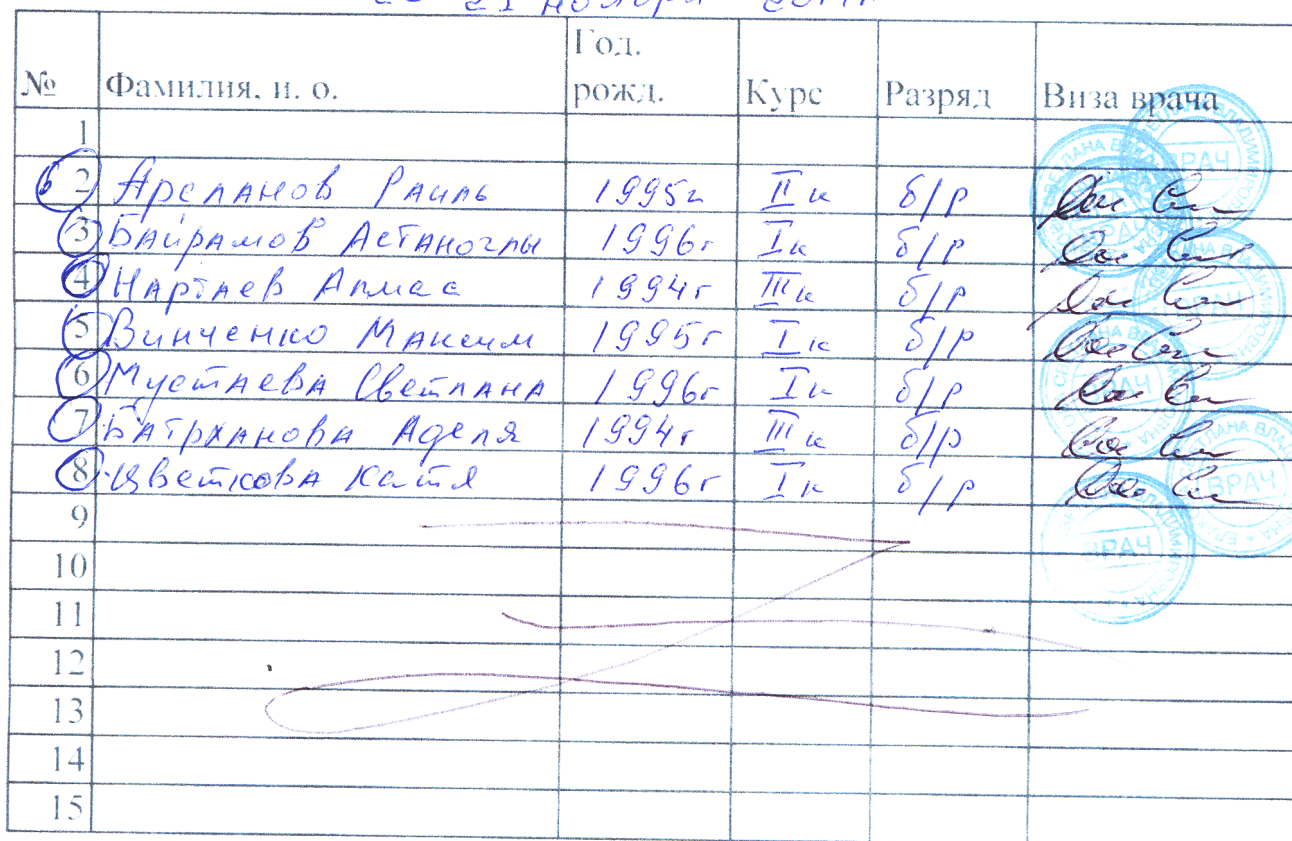 21 ноября
№ Фамилия, и. о. Год. рожд. Курс Разряд Виза врача
1
2 Арсланов Раиль 1995г II к б/р
3 Байрамов Астаноглы 1996г I к б/р
4 Нартаев Алмас 1994г III к б/р
5 Винченко Максим 1995г I к б/р
6 Мустаева Светлана 1996г I к б/р
7 Батрханова Аделя 1994г III к б/р
8 Цветкова Катя 1996г I к б/р
9
10
11
12
13
14
15
ВРАЧ
ВРАЧ
ВРАЧ
ВРАЧ
ВРАЧ